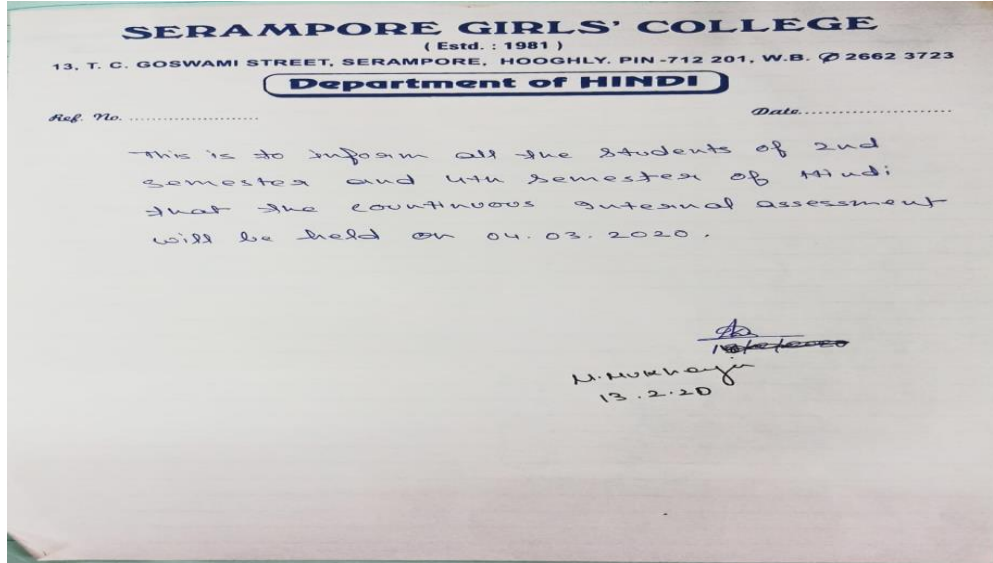 SERAMPORE GIRLS' COLLEGE
( Estd. : 1981 )
13, T. C. GOSWAMI STREET, SERAMPORE, HOOGHLY. PIN -712 201, W.B. ✆ 2662 3723
Department of HINDI
Ref. No. ........................ Date.........................
This is to inform all the students of 2nd
semester and 4th semester of Hindi
that the countinuous internal assessment
will be held on 04.03.2020.
M. Mukherjee
13.2.20